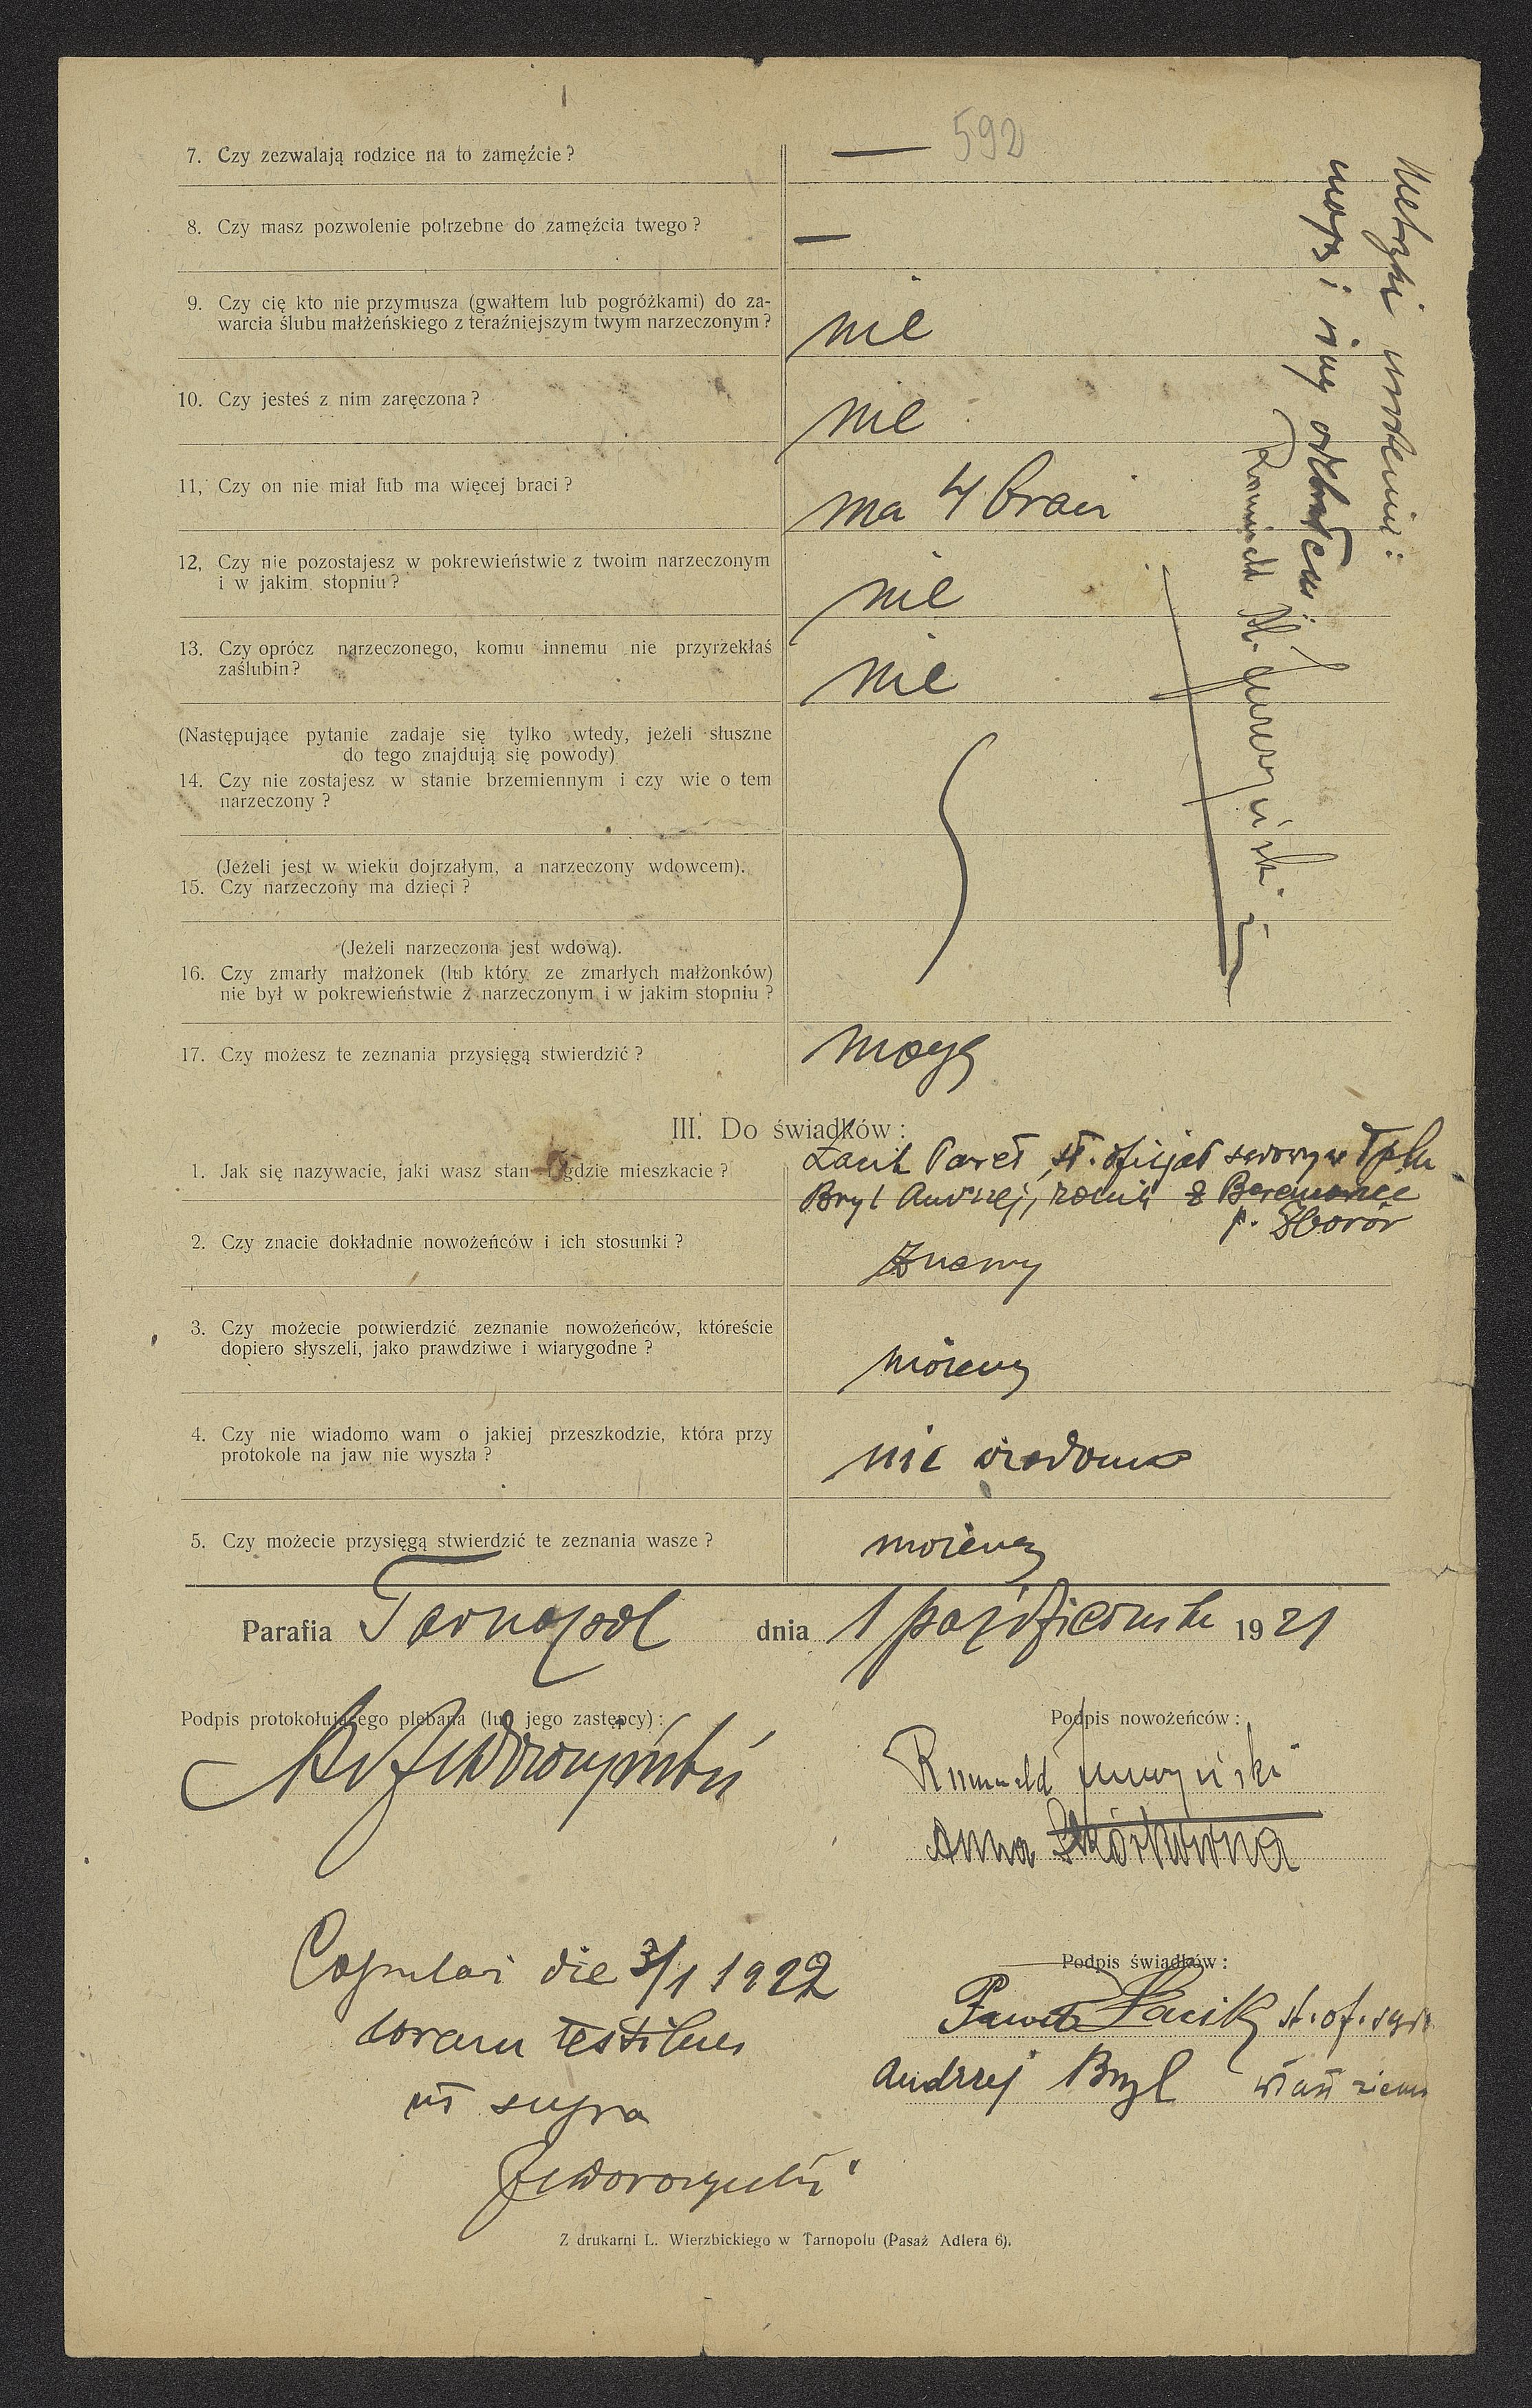 592
7. Czy zezwalają rodzice na to zamęźcie? —
8. Czy masz pozwolenie potrzebne do zamęźcia twego? —
9. Czy cię kto nie przymusza (gwałtem lub pogróżkami) do za-
warcia ślubu małżeńskiego z teraźniejszym twym narzeczonym? nie
10. Czy jesteś z nim zaręczona? nie
11. Czy on nie miał lub ma więcej braci? ma 4 braci
12. Czy nie pozostajesz w pokrewieństwie z twoim narzeczonym
i w jakim stopniu? nie
13. Czy oprócz narzeczonego, komu innemu nie przyrzekłaś
zaślubin? nie
(Następujące pytanie zadaje się tylko wtedy, jeżeli słuszne
do tego znajdują się powody)
14. Czy nie zostajesz w stanie brzemiennym i czy wie o tem
narzeczony?
(Jeżeli jest w wieku dojrzałym, a narzeczony wdowcem).
15. Czy narzeczony ma dzieci?
(Jeżeli narzeczona jest wdową).
16. Czy zmarły małżonek (lub który ze zmarłych małżonków)
nie był w pokrewieństwie z narzeczonym i w jakim stopniu?
17. Czy możesz te zeznania przysięgą stwierdzić? mogę
Metryki urodzenia:
moją i żony odebrałem:
Romuald
III. Do świadków:
1. Jak się nazywacie, jaki wasz stan i gdzie mieszkacie? Łacik Paweł, st. oficjał sądowy w
Bryl Andrzej, rolnik z
p. Zborów
2. Czy znacie dokładnie nowożeńców i ich stosunki? znamy
3. Czy możecie potwierdzić zeznanie nowożeńców, któreście
dopiero słyszeli, jako prawdziwe i wiarygodne? możemy
4. Czy nie wiadomo wam o jakiej przeszkodzie, która przy
protokole na jaw nie wyszła? nie wiadomo
5. Czy możecie przysięgą stwierdzić te zeznania wasze? możemy
Parafia Tarnopol dnia 1 października 1921
Podpis protokołującego plebana (lub jego zastępcy):
Podpis nowożeńców:
Romuald
Anna Skórkówna
Copulati die 3/1 1922
coram testibus
ut supra
Podpis świadków:
Paweł Łacik st. of. sąd.
Andrzej Bryl właśc ziem
Z drukarni L. Wierzbickiego w Tarnopolu (Pasaż Adlera 6).